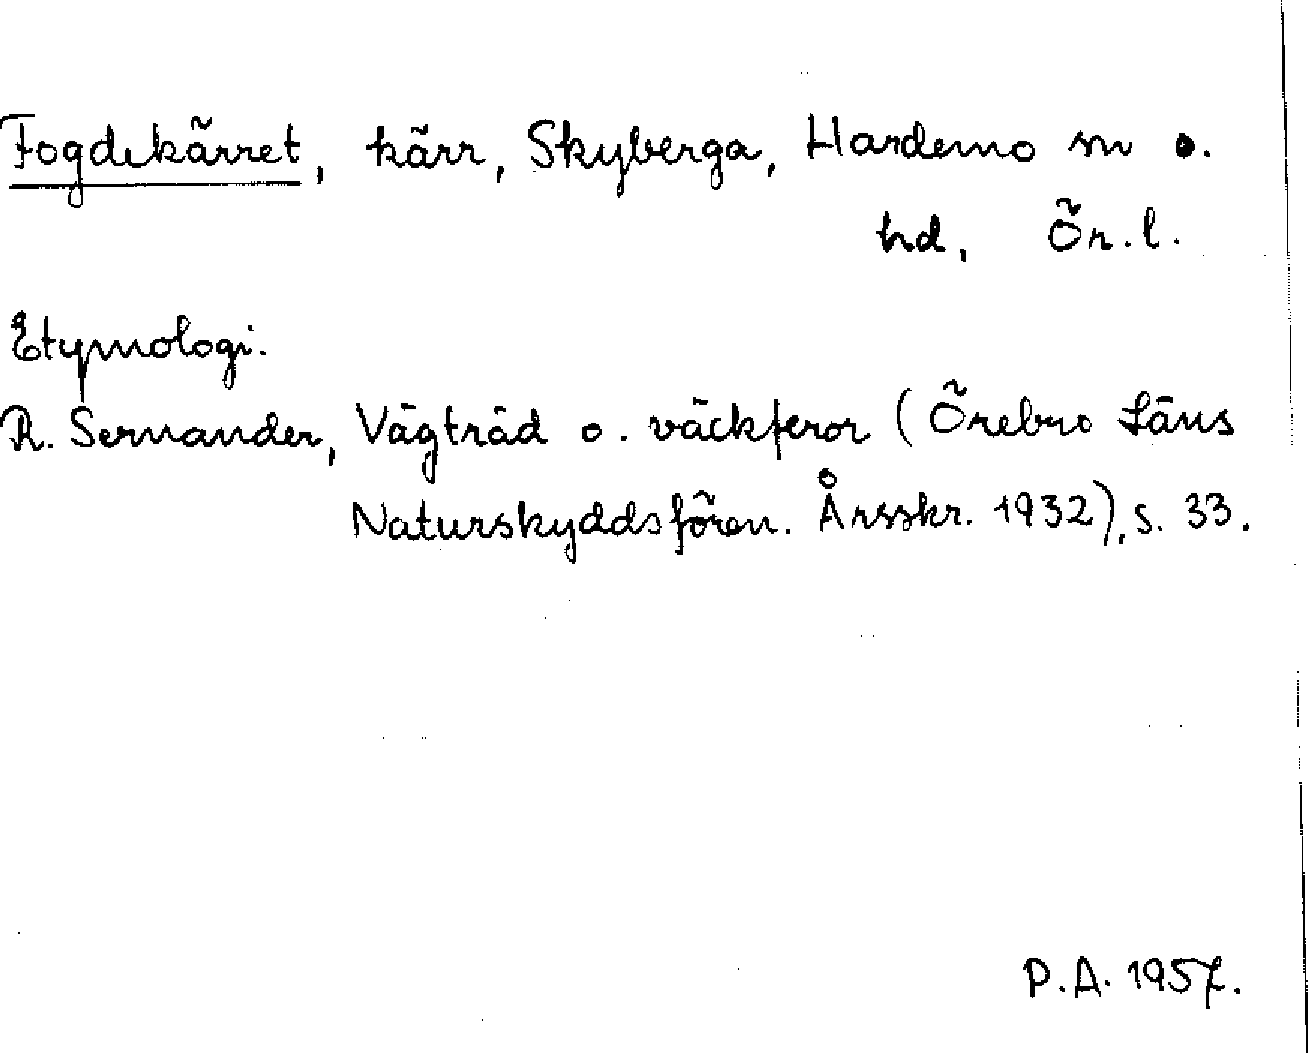 Fogdekärret, kärr, Skyberga, Hardemo sn o.
hd, Ör.l.
Etymologi.
R. Sernander, Vägträd o. väckferor (Örebro Läns
Naturskyddsfören. Årsskr. 1932), s. 33.
P.A. 1957.